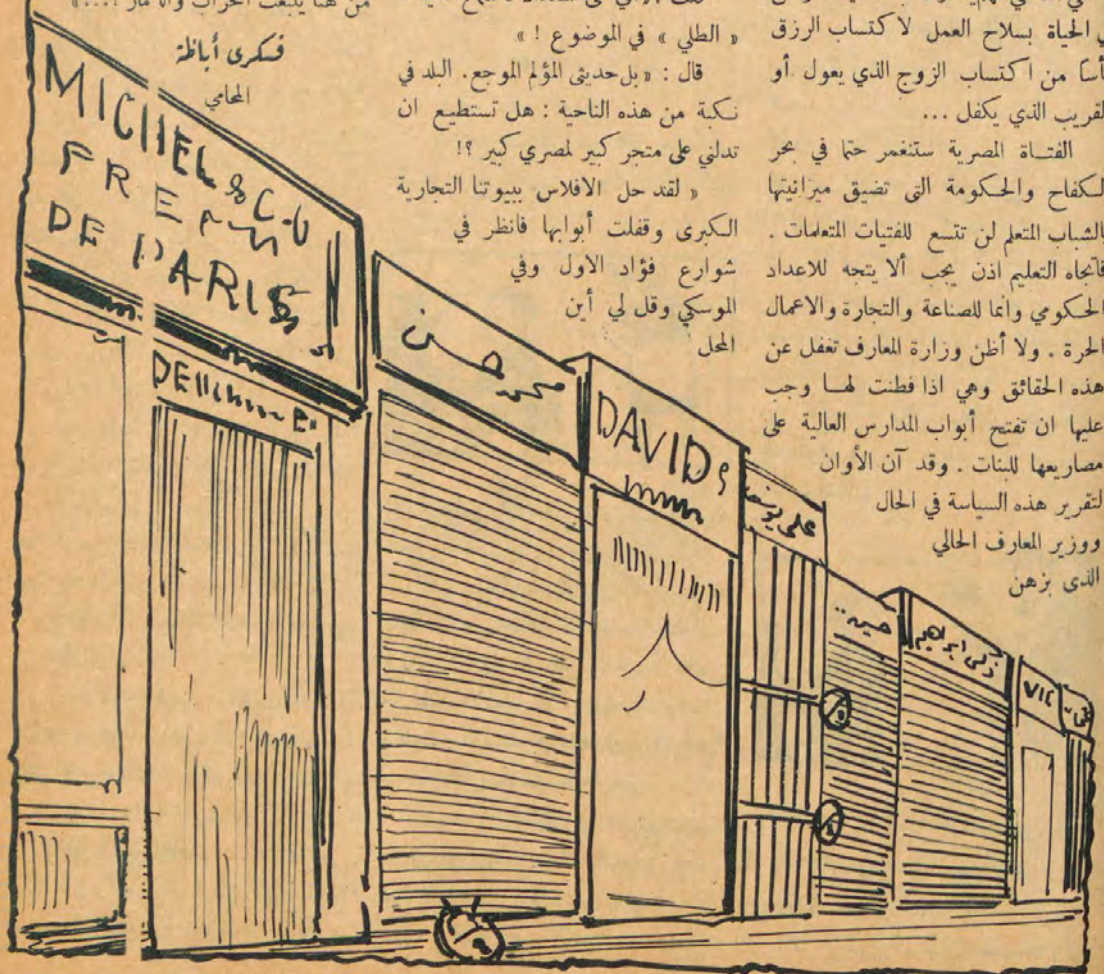 ي الحياة بسلاح العمل لاكتساب الرزق
أساً من اكتساب الزوج الذي يعول أو
لقريب الذي يكفل ...
الفتاة المصرية ستنغمر حتما في بحر
لكفاح والحكومة التي تضيق ميزانيتها
بالشباب المتعلم لن تتسع للفتيات المتعلمات .
فاتجاه التعليم اذن يجب ألا يتجه للاعداد
الحكومي وانما للصناعة والتجارة والاعمال
الحرة . ولا أظن وزارة المعارف تغفل عن
هذه الحقائق وهي اذا فطنت لها وجب
عليها ان تفتح أبواب المدارس العالية على
مصاريعها للبنات . وقد آن الأوان
لتقرير هذه السياسة في الحال
ووزير المعارف الحالي
الذى بزهن
« الطلي » في الموضوع ! »
قال : « بل حديثي المؤلم الموجع . البلد في
نكبة من هذه الناحية : هل تستطيع ان
تدلني على متجر كبير لمصري كبير ؟!
« لقد حل الافلاس ببيوتنا التجارية
الكبرى وقفلت أبوابها فانظر في
شوارع فؤاد الاول وفي
الموسكي وقل لي أين
المحل
من هنا ينبعث الخراب
فكرى أباظة
المحامي
MICHEL & Co
DE PARIS
محمد حسن
DAVID
على يوسف
زكى ابراهيم
VIC